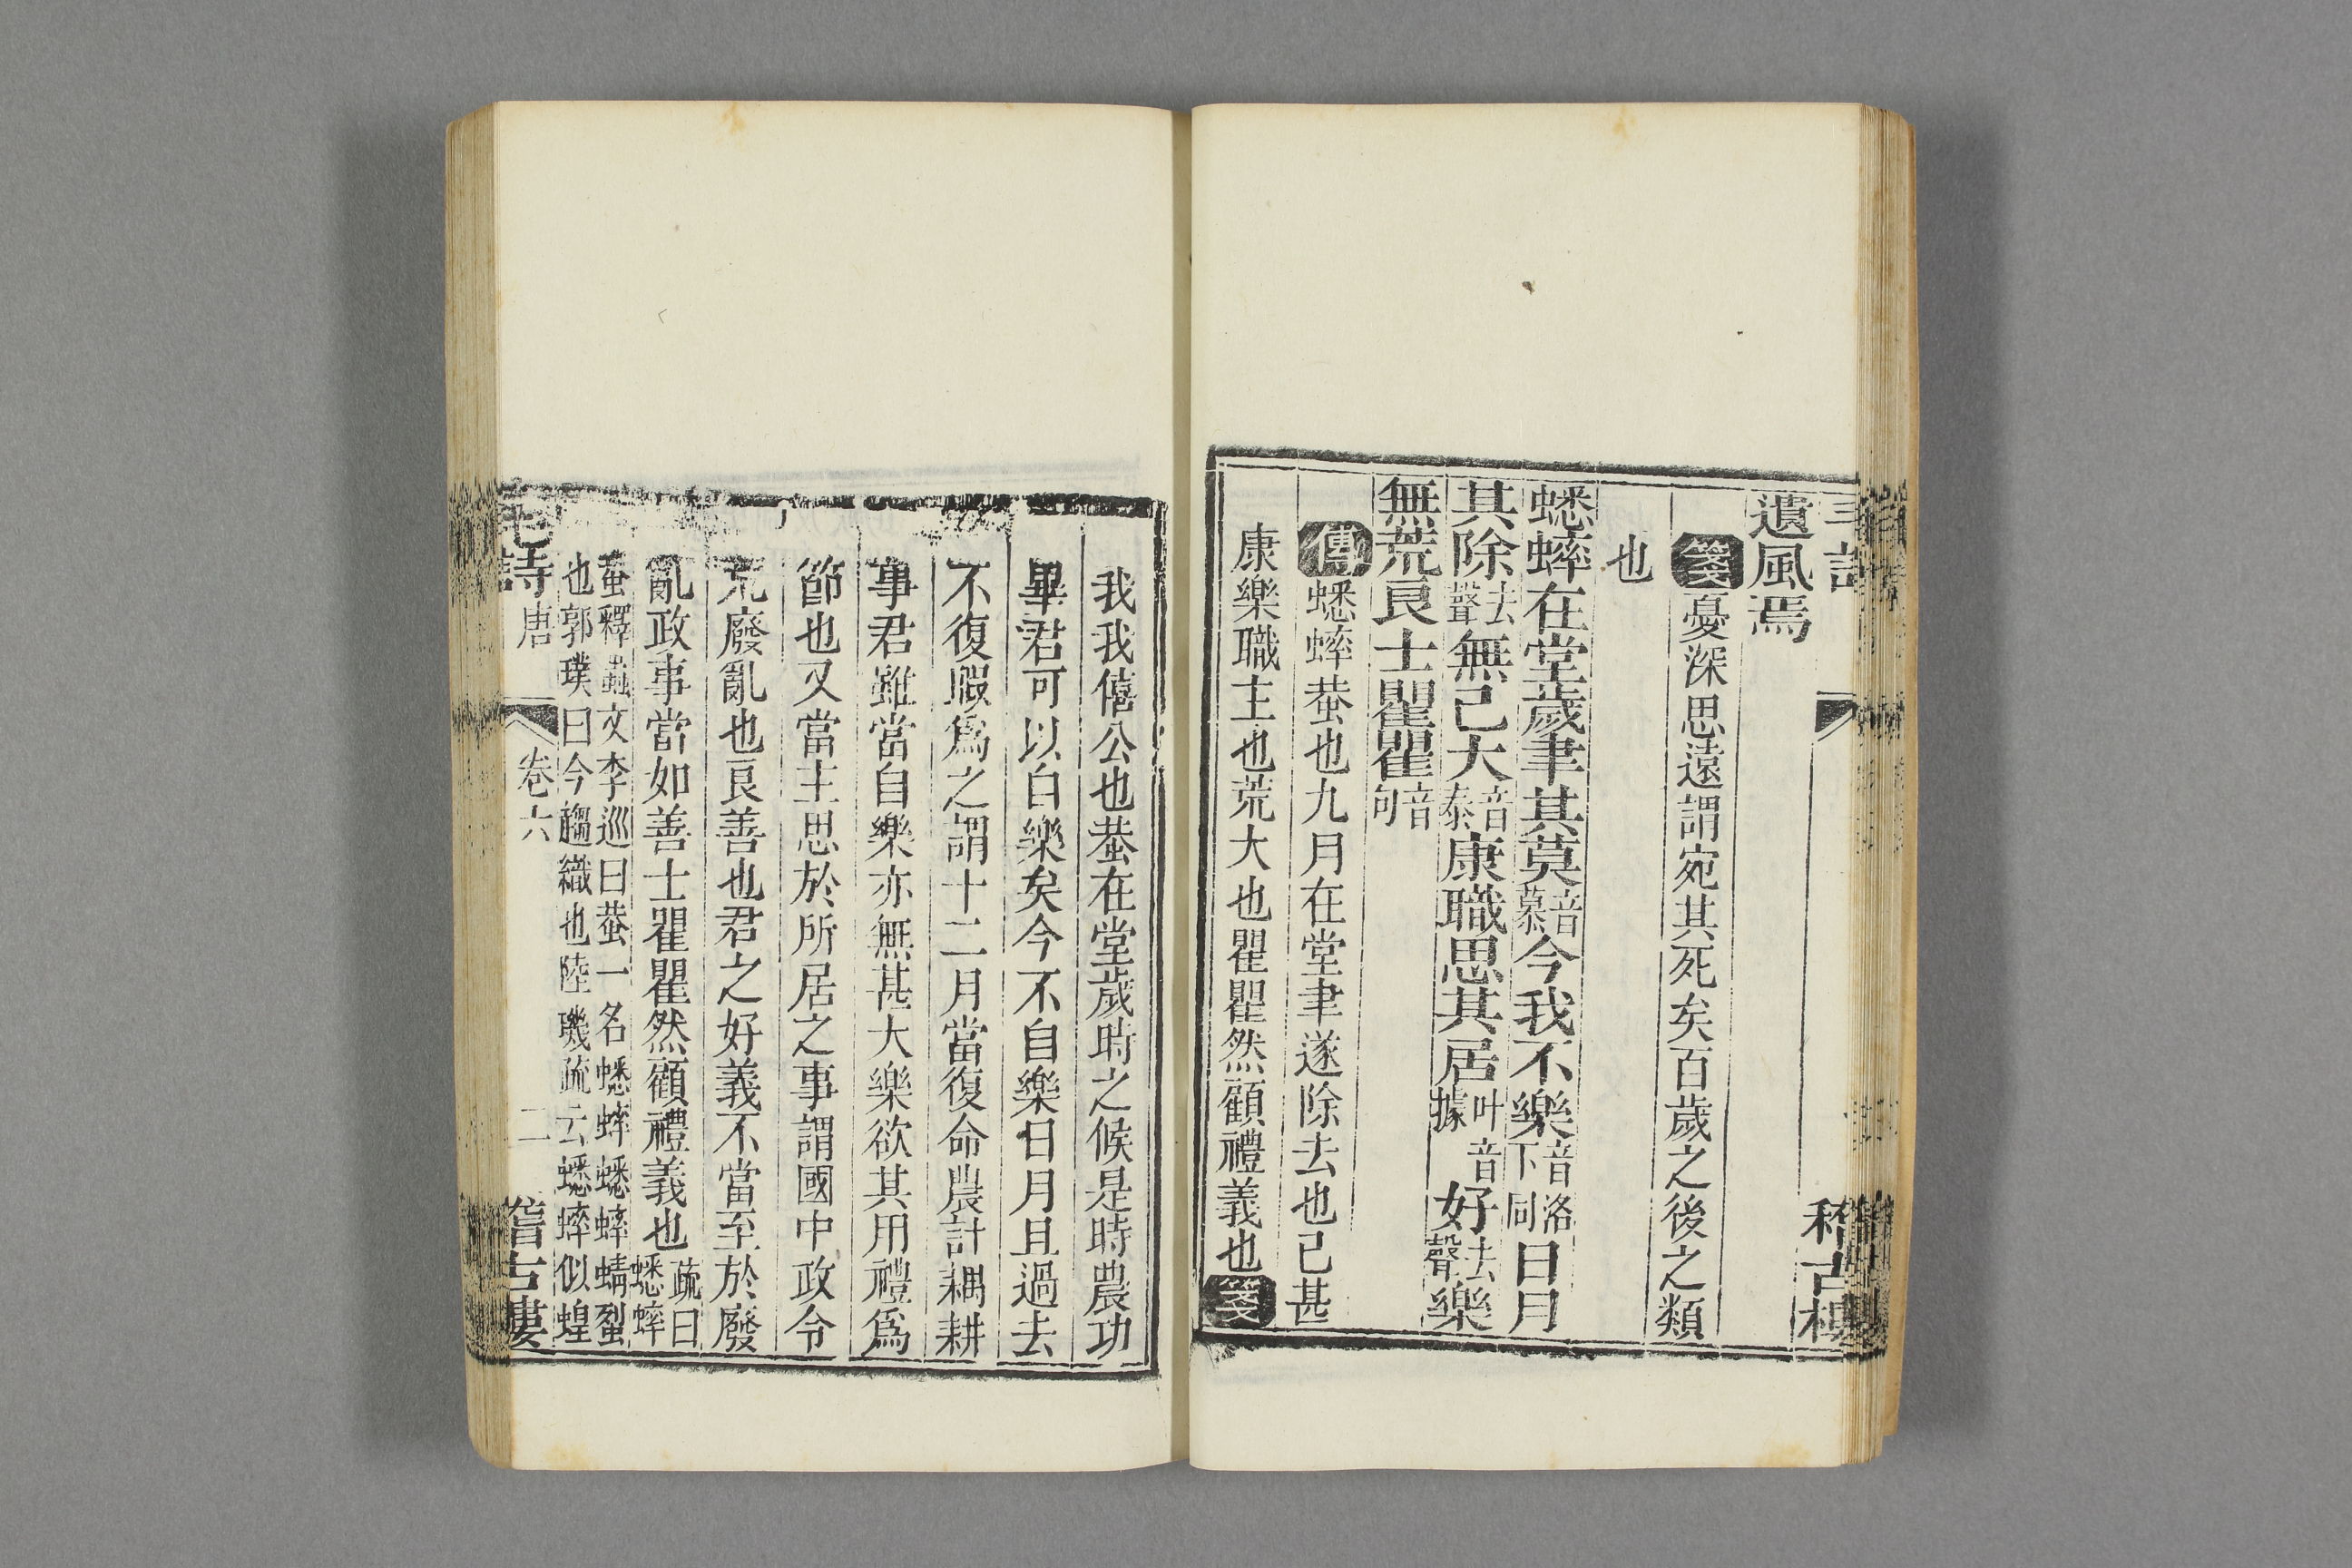 遺風焉
箋憂深思遠謂宛其死矣百歲之後之類
也
蟋蟀在堂歲聿其莫音慕今我不樂音洛下同日月
其除去聲無已大音泰康職思其居叶音據好去聲樂
無荒良士瞿瞿音句
傳蟋蟀蛬也九月在堂聿遂除去也已甚
康樂職主也荒大也瞿瞿然顧禮義也箋
稽古樓
我我僖公也蛬在堂歲時之候是時農功
畢君可以自樂矣今不自樂日月且過去
不復暇為之謂十二月當復命農計耦耕
事君雖當自樂亦無甚大樂欲其用禮為
節也又當主思於所居之事謂國中政令
荒廢亂也良善也君之好義不當至於廢
亂政事當如善士瞿瞿然顧禮義也疏曰蟋蟀
蛬釋蟲文李巡曰蛬一名蟋蟀蟋蟀蜻蛚
也郭璞曰今趨織也陸璣疏云蟋蟀似蝗
毛詩 唐 卷六 二 稽古樓